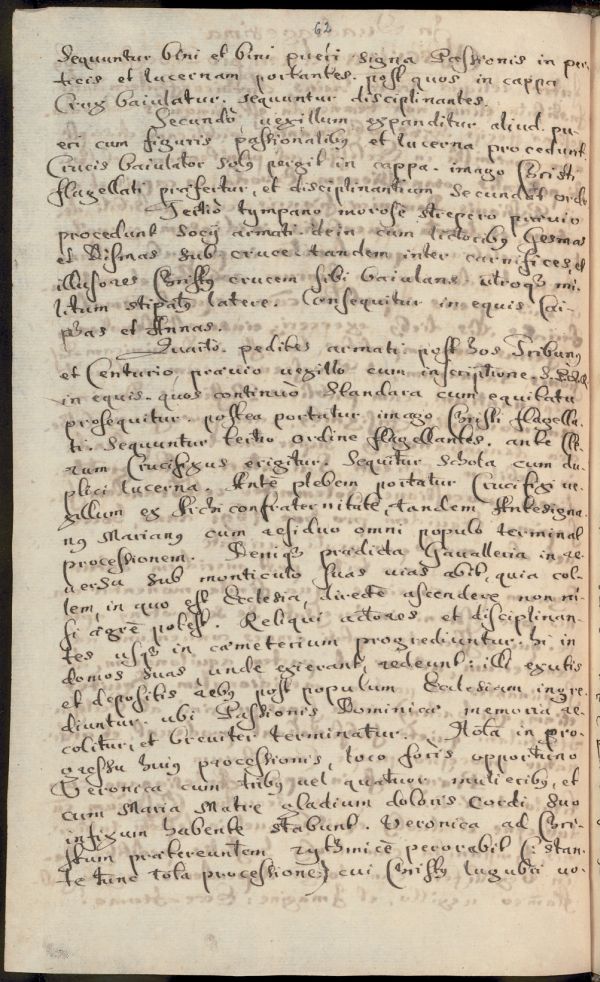 62
Sequuntur bini et bini pueri signa Passionis in per-
ticis et lucernam portantes. post quos in cappa
Crux baiulatur. sequuntur disciplinantes.
Secundò, vexillum expanditur aliud. pu-
eri cum figuris passionalibꝰ et lucerna procedunt.
Crucis baiulator solꝰ pergit in cappa. imago Christi
flagellati præfertur, et disciplinantium secundus ordo
Tertiò tympano morosè strepero prævio
procedunt Socij armati. dein cum lictoribꝰ Gesmas
et Dismas sub cruce. tandem inter carnifices, et
illusores Christꝰ crucem sibi baiulans. utroqꝫ mi-
litum stipatꝰ latere. Consequitur in equis Cai-
phas et Annas.
Quartò. pedites armati. post hos Tribunꝰ
et Centurio prævio vexillo cum inscriptione
in equis. quos continuò Standara cum equitatu
prosequitur. postea portatur imago Christi flagella-
ti. Sequuntur tertio ordine flagellantes. ante
rum Crucifixus erigitur. Sequitur Schola cum du-
plici lucerna. Ante plebem portatur Crucifixi ve-
xillum ex Archiconfraternitate, tandem Antesigna-
nꝰ Marianꝰ cum residuo omni populo terminat
processionem. Deniqꝫ prædicta Gavalleria in re-
versu sub monticulo suas vias abit, quia col-
lem, in quo est Ecclesia, directè ascendere non ni-
si ægrè potest. Reliqui actores et disciplinan-
tes usqꝫ in cæmeterium progrediuntur. hi in
domos suas unde exierant, redeunt: illi exutis
et depositis rebꝰ post populum Ecclesiam ingre-
diuntur. ubi Passionis Dominicæ memoria re-
colitur, et breviter terminatur. Nota in pro-
gressu huiꝰ processionis, loco foris opportuno
Veronica cum tribꝰ vel quatuor mulieribꝰ, et
cum Maria Matre gladium doloris Cordi suo
infixum habente stabunt. Veronica ad Chri-
stum prætereuntem rythmicè perorabit (: stan-
te tunc tota processione:) cui Christꝰ lugubri vo-